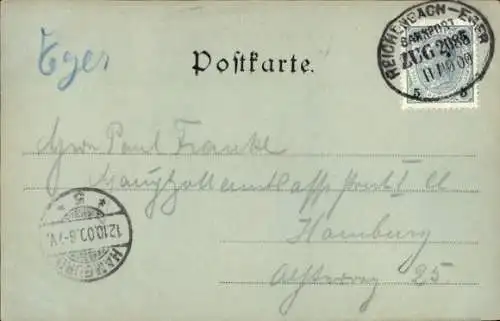 Eger
Postkarte.
REICHENBACH-EGER
BAHNPOST
ZUG 2085
11 10 00
5 5
Herrn Paul Frankl
Hauptzollamtsassistent
Hamburg
Alsterweg 25.
HAMBURG
12.10.00.6-7V.
* 5 *